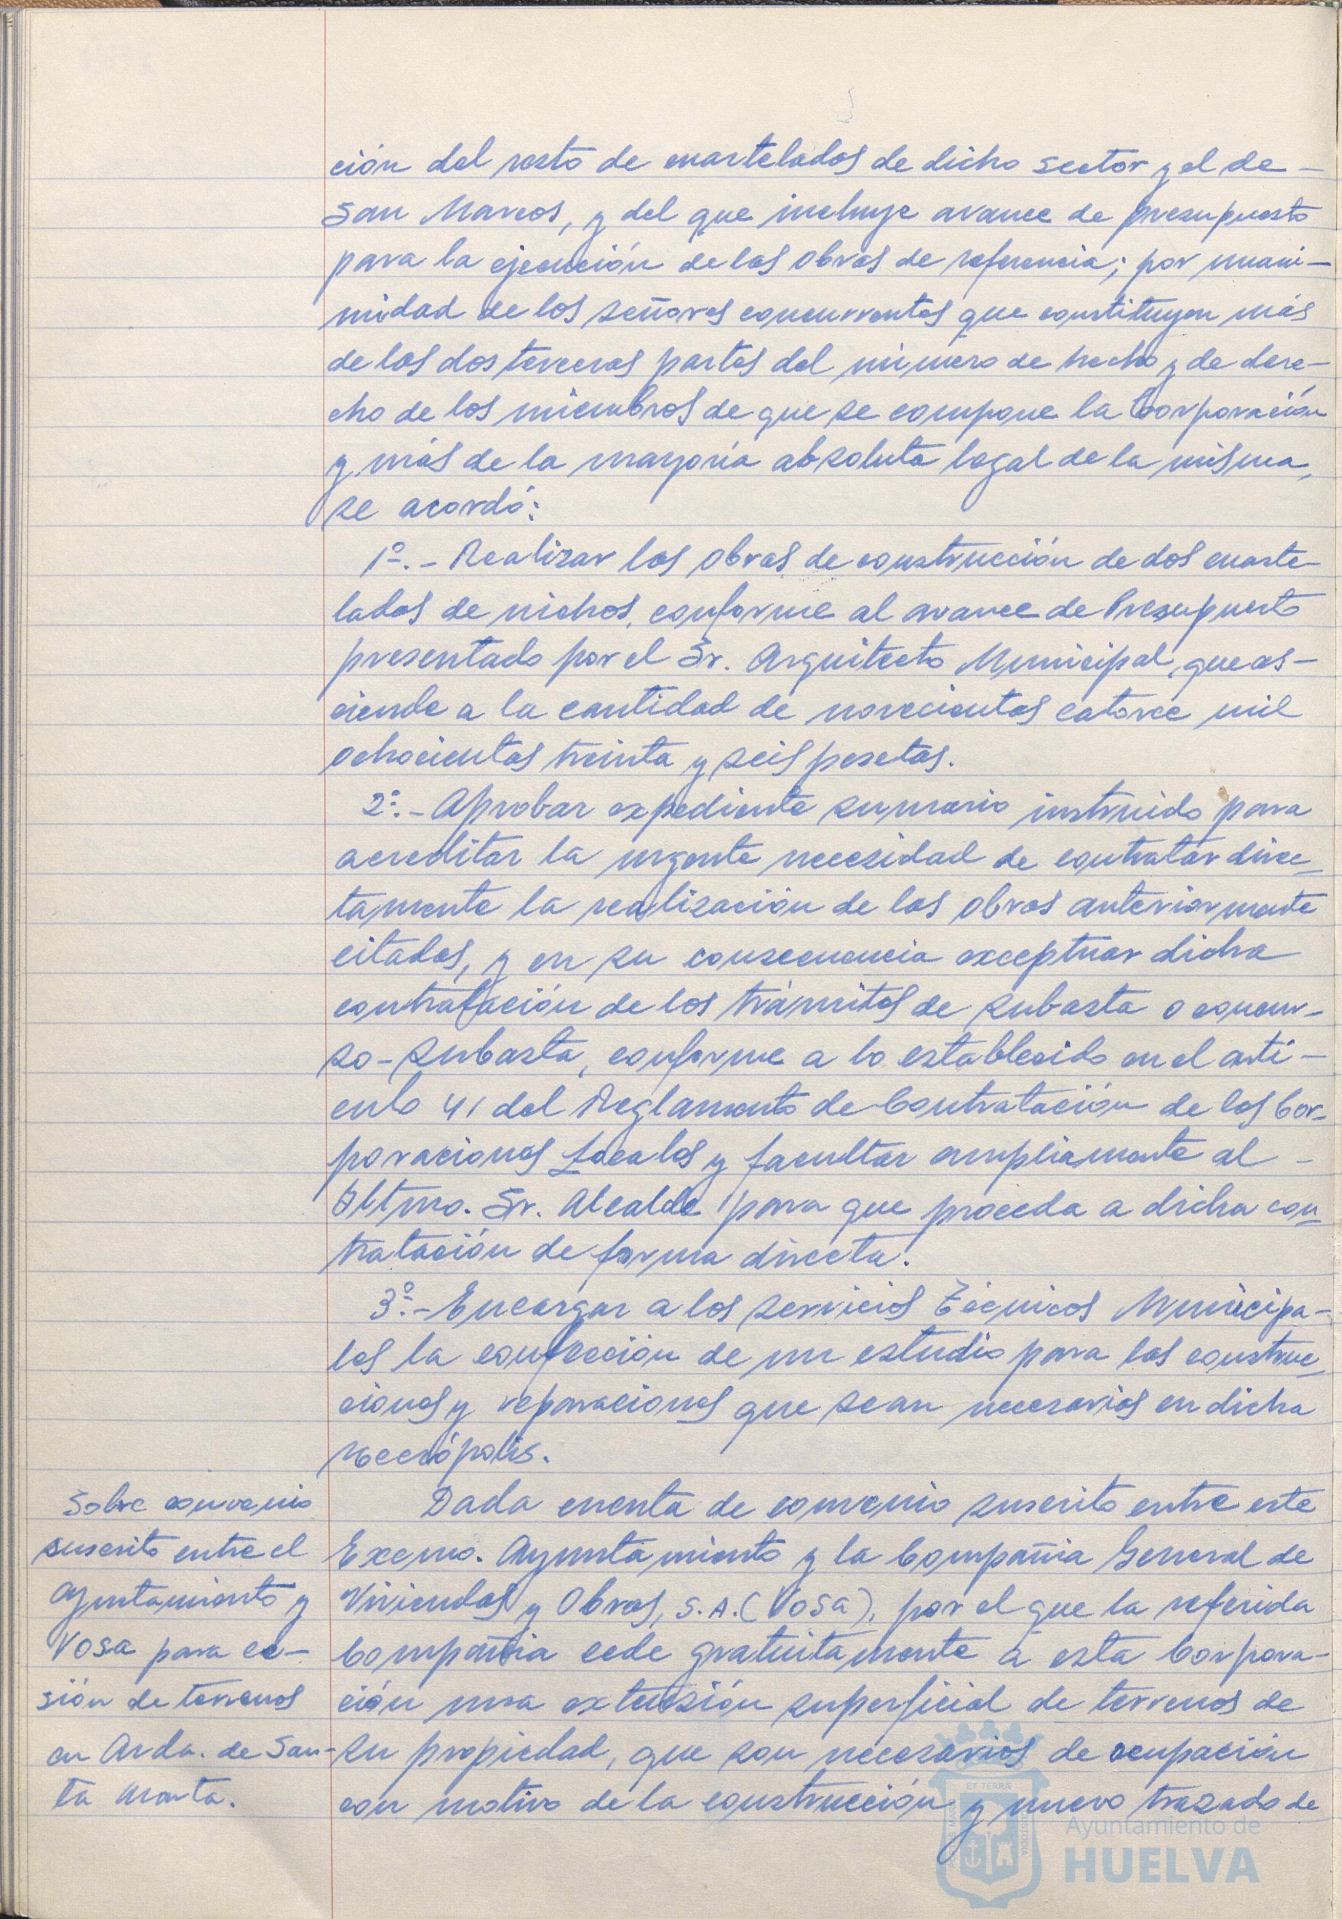 ción del resto de cuartelados de dicho sector y el de -
San Marcos, y del que incluye avance de presupuesto
para la ejecución de las obras de referencia; por unani-
midad de los señores concurrentes que constituyen más
de las dos terceras partes del número de hecho y de dere-
cho de los miembros de que se compone la Corporación
y más de la mayoría absoluta legal de la misma,
se acordó:
1º.- Realizar las obras de construcción de dos cuarte-
lados de nichos, conforme al avance de Presupuesto
presentado por el Sr. Arquitecto Municipal, que as-
ciende a la cantidad de novecientas catorce mil
ochocientas treinta y seis pesetas.
2º.- Aprobar expediente sumario instruido para
acreditar la urgente necesidad de contratar direc-
tamente la realización de las obras anteriormente
citadas, y en su consecuencia exceptuar dicha
contratación de los trámites de subasta o concur-
so-subasta, conforme a lo establecido en el artí-
culo 41 del Reglamento de Contratación de las Cor-
poraciones Locales y facultar ampliamente al -
Iltmo. Sr. Alcalde para que proceda a dicha con-
tratación de forma directa.
3º.- Encargar a los Servicios Técnicos Municipa-
les la confección de un estudio para las construc-
ciones y reparaciones que sean necesarias en dicha
Necrópolis.
Sobre convenio
suscrito entre el
Ayuntamiento y
Vosa para ce-
sión de terrenos
en Avda. de San-
ta Marta.
Dada cuenta de convenio suscrito entre este
Excmo. Ayuntamiento y la Compañia General de
Viviendas y Obras, S.A. (Vosa), por el que la referida
Compañia cede gratuitamente a esta Corpora-
ción una extensión superficial de terrenos de
su propiedad, que son necesarios de ocupación
con motivo de la construcción y nuevo trazado de
Ayuntamiento de
HUELVA